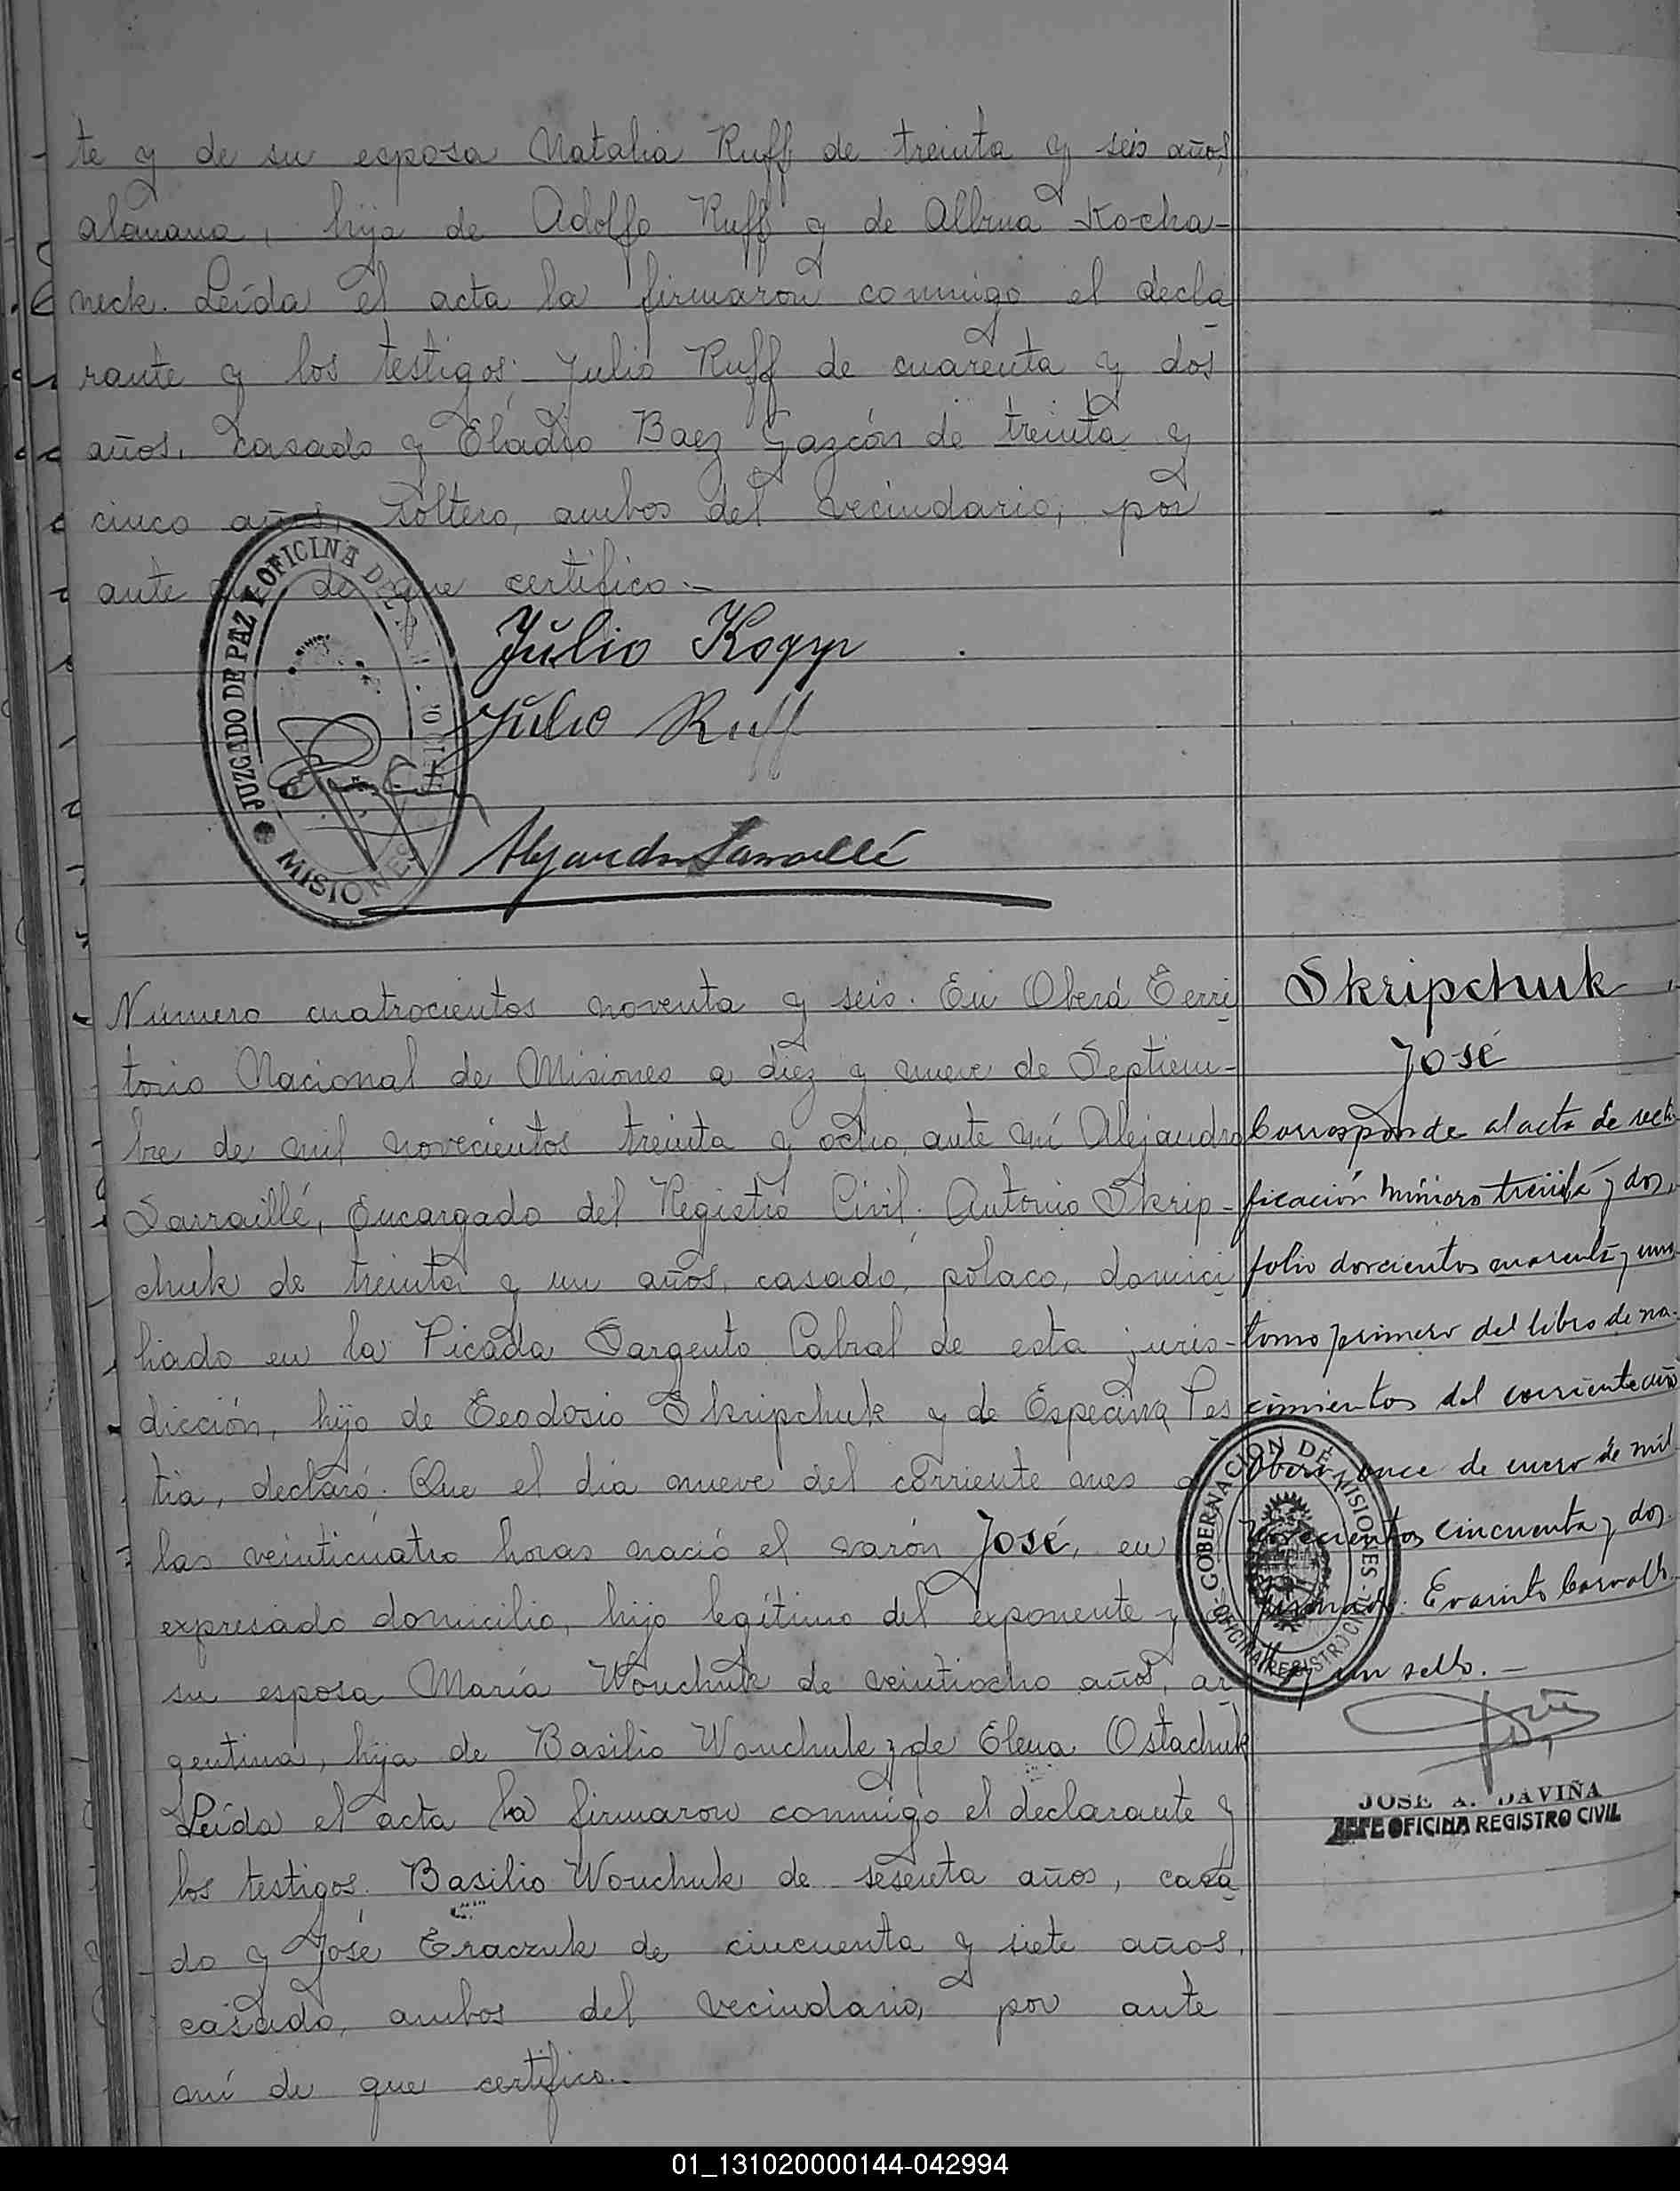 te y de su esposa Natalia Ruff de treinta y seis años,
alemana, hija de Adolfo Ruff y de Albina Kocha-
neck. Leída el acta la firmaron conmigo el decla
rante y los testigos: Julio Ruff de cuarenta y dos
años, casado y Eladio Baez Gazcón de treinta y
cinco años, soltero, ambos del vecindario, por
ante de que certifico.-
JUZGADO DE PAZ Y OFICINA DEL
MISIONES
Julio Kopp
Julio Ruff
Alejandro Sarraillé
Número cuatrocientos noventa y seis. En Oberá Terri
torio Nacional de Misiones a diez y nueve de Septiem-
bre de mil novecientos treinta y ocho, ante mí Alejandro
Sarraillé, Encargado del Registro Civil. Antonio Skrip-
chuk de treinta y un años, casado, polaco, domici
liado en la Picada Sargento Cabral de esta juris-
dicción, hijo de Teodosio Skripchuk y de Especina Pes
tia, declaró: Que el día nueve del corriente mes a
las veinticuatro horas nació el varón José, en
expresado domicilio, hijo legítimo del exponente y
su esposa María Wonchuk de veintiocho años, ar
gentina, hija de Basilio Wonchuk y de Elena Ostachuk
Leída el acta la firmaron conmigo el declarante y
los testigos. Basilio Wonchuk de sesenta años, casa
do y José Eraczuk de cincuenta y siete años,
casado, ambos del vecindario, por ante
mí de que certifico.-
Skripchuk
José
Corresponde al acta de recti
ficación número treinta y dos,
folio doscientos cuarenta y uno
tomo primero del libro de na-
cimientos del corriente año
Oberá, once de enero de mil
novecientos cincuenta y dos.
firmado: Evaristo Carvalho
Hay un sello.-
GOBERNACION DE MISIONES
OFICINA REGISTRO CIVIL
JOSE A. DAVIÑA
JEFE OFICINA REGISTRO CIVIL
01_131020000144-042994